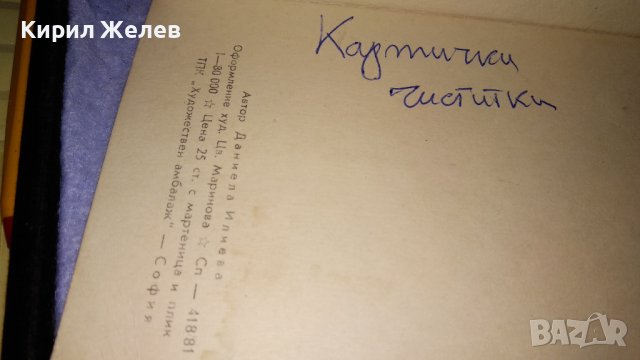 Кирил Желев
Картички
чиститки
Автор Даниела Илиева
Оформление худ. Цв. Маринова ☆ Сп — 41881
1—80 000 ☆ Цена 25 ст. с мартеница и плик
ТПК „Художествен амбалаж“ — София
BAZAR